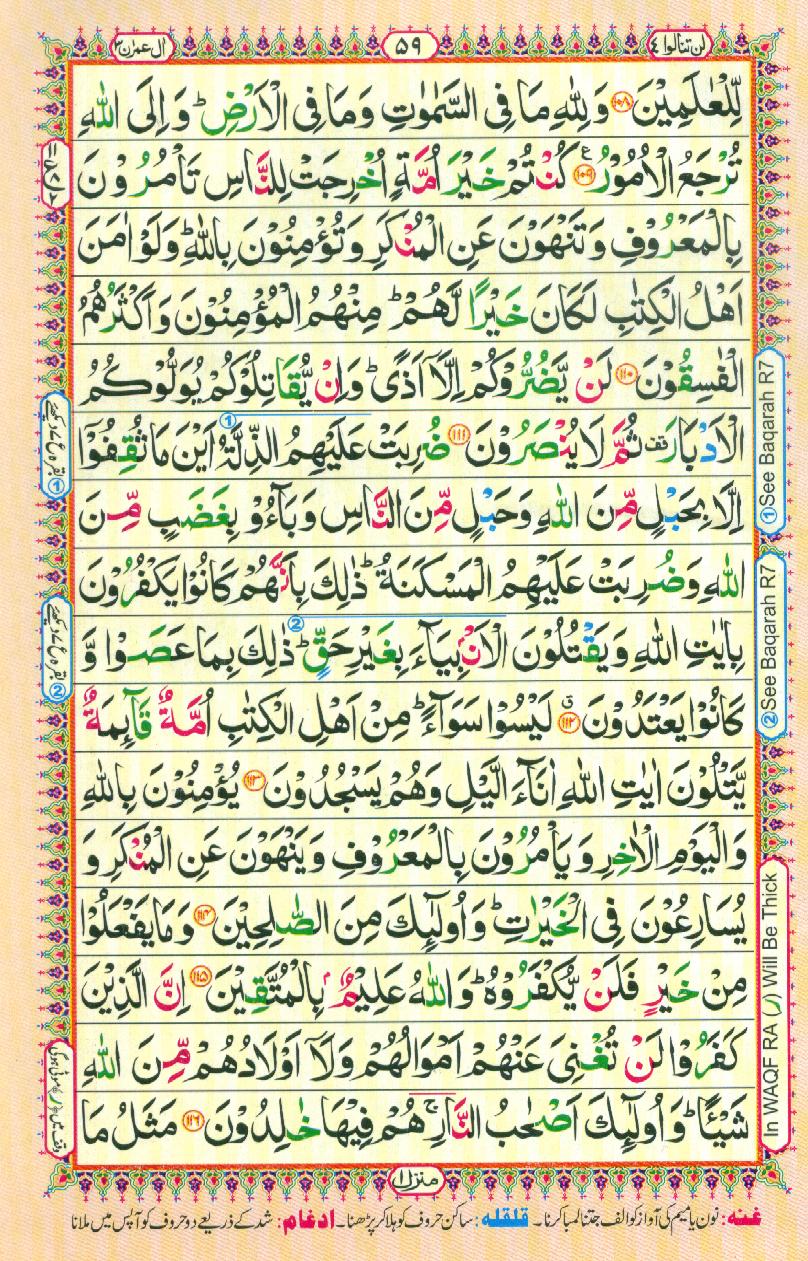 لن تنالوا ٤
٥٩
اٰل عمرٰن ٣
لِّلْعٰلَمِیْنَ ﴿۱۰۸﴾ وَلِلّٰهِ مَا فِی السَّمٰوٰتِ وَمَا فِی الْاَرْضِ ؕ وَاِلَی اللّٰهِ
تُرْجَعُ الْاُمُوْرُ ﴿۱۰۹﴾ ع كُنْتُمْ خَیْرَ اُمَّةٍ اُخْرِجَتْ لِلنَّاسِ تَاْمُرُوْنَ
بِالْمَعْرُوْفِ وَتَنْهَوْنَ عَنِ الْمُنْكَرِ وَتُؤْمِنُوْنَ بِاللّٰهِ ؕ وَلَوْ اٰمَنَ
اَهْلُ الْكِتٰبِ لَكَانَ خَیْرًا لَّهُمْ ؕ مِنْهُمُ الْمُؤْمِنُوْنَ وَاَكْثَرُهُمُ
الْفٰسِقُوْنَ ﴿۱۱۰﴾ لَنْ یَّضُرُّوْكُمْ اِلَّاۤ اَذًی ؕ وَاِنْ یُّقَاتِلُوْكُمْ یُوَلُّوْكُمُ
الْاَدْبَارَ قف ثُمَّ لَا یُنْصَرُوْنَ ﴿۱۱۱﴾ ضُرِبَتْ عَلَیْهِمُ الذِّلَّةُ اَیْنَ مَا ثُقِفُوْۤا
اِلَّا بِحَبْلٍ مِّنَ اللّٰهِ وَحَبْلٍ مِّنَ النَّاسِ وَبَآءُوْ بِغَضَبٍ مِّنَ
اللّٰهِ وَضُرِبَتْ عَلَیْهِمُ الْمَسْكَنَةُ ؕ ذٰلِكَ بِاَنَّهُمْ كَانُوْا یَكْفُرُوْنَ
بِاٰیٰتِ اللّٰهِ وَیَقْتُلُوْنَ الْاَنْۢبِیَآءَ بِغَیْرِ حَقٍّ ؕ ذٰلِكَ بِمَا عَصَوْا وَّ
كَانُوْا یَعْتَدُوْنَ ﴿۱۱۲﴾ ق لَیْسُوْا سَوَآءً ؕ مِنْ اَهْلِ الْكِتٰبِ اُمَّةٌ قَآئِمَةٌ
یَّتْلُوْنَ اٰیٰتِ اللّٰهِ اٰنَآءَ الَّیْلِ وَهُمْ یَسْجُدُوْنَ ﴿۱۱۳﴾ یُؤْمِنُوْنَ بِاللّٰهِ
وَالْیَوْمِ الْاٰخِرِ وَیَاْمُرُوْنَ بِالْمَعْرُوْفِ وَیَنْهَوْنَ عَنِ الْمُنْكَرِ وَ
یُسَارِعُوْنَ فِی الْخَیْرٰتِ ؕ وَاُولٰٓئِكَ مِنَ الصّٰلِحِیْنَ ﴿۱۱۴﴾ وَمَا یَفْعَلُوْا
مِنْ خَیْرٍ فَلَنْ یُّكْفَرُوْهُ ؕ وَاللّٰهُ عَلِیْمٌۢ بِالْمُتَّقِیْنَ ﴿۱۱۵﴾ اِنَّ الَّذِیْنَ
كَفَرُوْا لَنْ تُغْنِیَ عَنْهُمْ اَمْوَالُهُمْ وَلَاۤ اَوْلَادُهُمْ مِّنَ اللّٰهِ
شَیْئًا ؕ وَاُولٰٓئِكَ اَصْحٰبُ النَّارِ ۚ هُمْ فِیْهَا خٰلِدُوْنَ ﴿۱۱۶﴾ مَثَلُ مَا
منزل ١
① See Baqarah R7
② See Baqarah R7
In WAQF RA (ر) Will Be Thick
بقرہ ع ۷ دیکھئے ①
بقرہ ع ۷ دیکھئے ②
وقف میں (ر) موٹی ہوگی
غنه: نون یا میم کی آواز کو الف جتنا لمبا کرنا۔ قلقله: ساکن حروف کو ہلا کر پڑھنا۔ ادغام: شد کے ذریعے دو حروف کو آپس میں ملانا